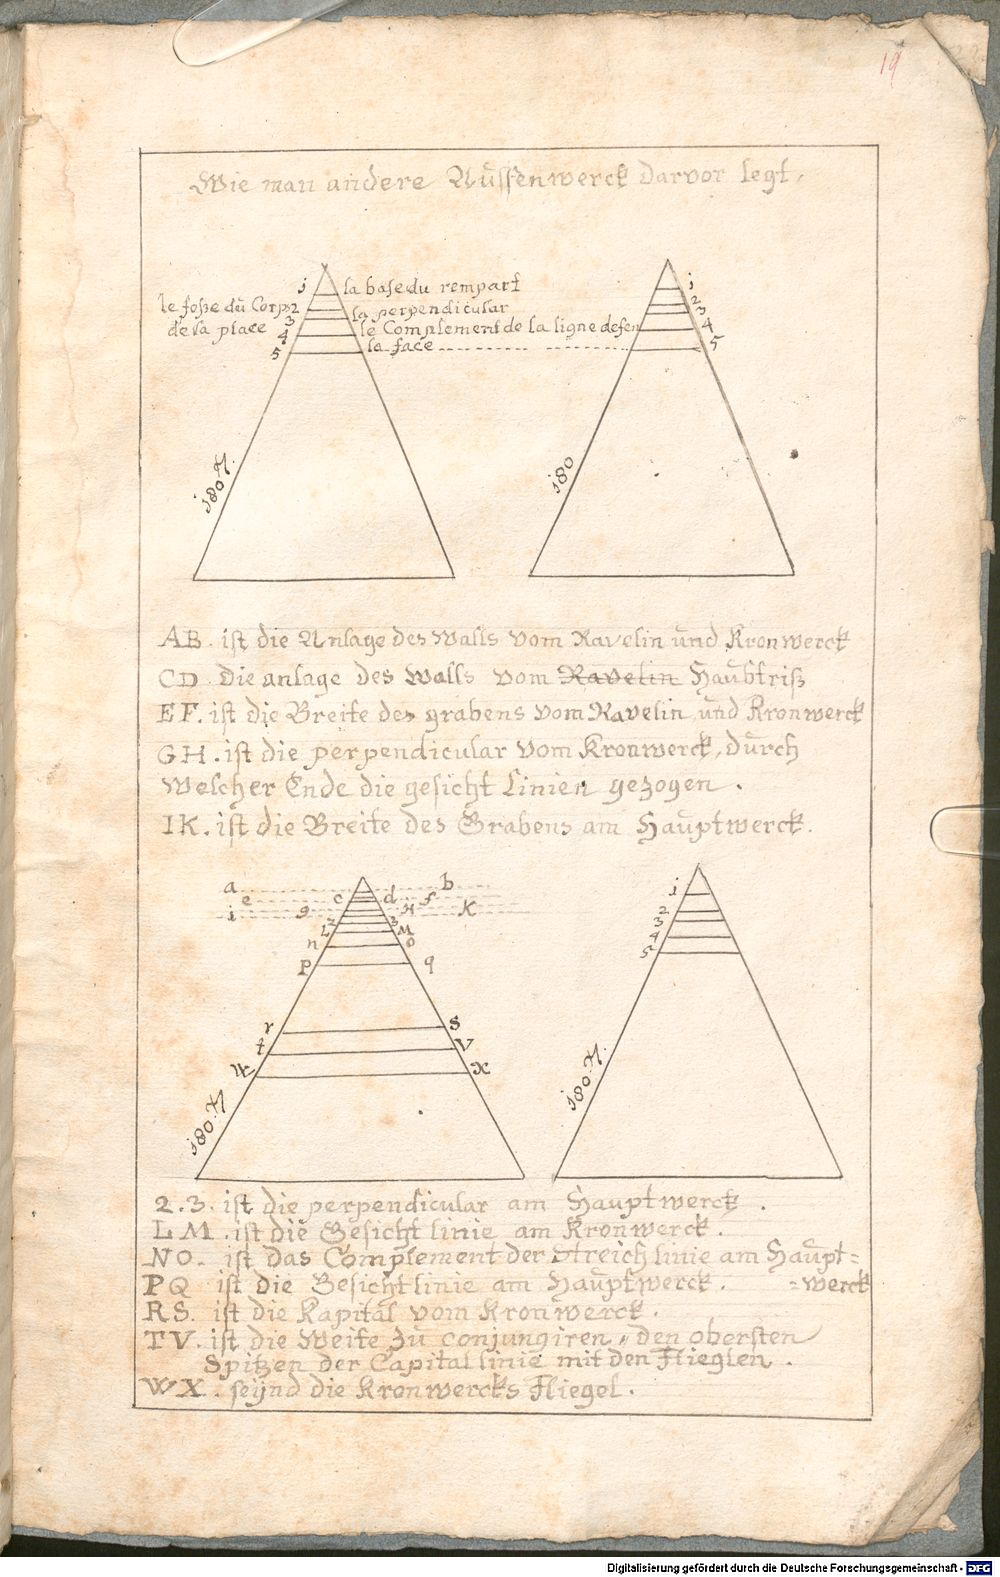 19
Wie man andere Aussenwerck darvor legt.
1 la base du rempart 1
le fosse du Corps 2 la perpendicular 2
de la place 3 le Complement de la ligne defen 3
4 4
5 la face 5
180. R.
180
AB. ist die Anlage des Walls vom Ravelin und Kronwerck
CD die anlage des Walls vom Ravelin Haubtriß
EF. ist die Breite des grabens vom Ravelin und Kronwerck
GH. ist die perpendicular vom Kronwerck, durch
Welcher Ende die gesicht Linien gezogen.
IK. ist die Breite des Grabens am Hauptwerck.
a b
e c d f
i g H K
2 3
L M
n o
p q
r s
t V
W X
180. R
1
2
3
4
5
180. R.
2.3. ist die perpendicular am Hauptwerck.
LM. ist die Gesicht linie am Kronwerck.
NO. ist das Complement der Streich linie am Haupt=
PQ ist die Gesicht linie am Hauptwerck. =werck
RS. ist die Kapital vom Kronwerck.
TV. ist die Weite zu conjungiren den obersten
Spitzen der Capital linie mit den Flieglen.
WX. seynd die Kronwercks Fliegel.
Digitalisierung gefördert durch die Deutsche Forschungsgemeinschaft - DFG